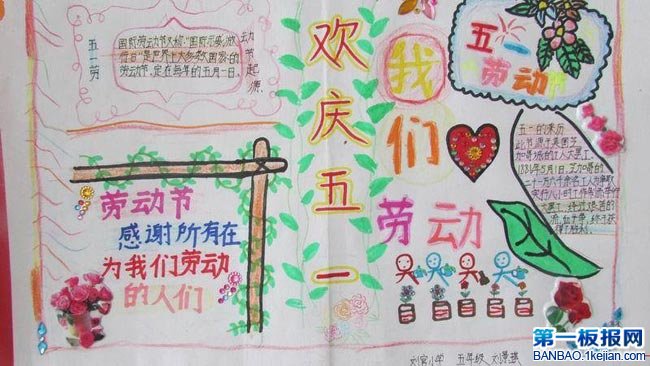 五一劳
动节起源
国际劳动节又称"国际示威游
行日"是世界上大多数国家的
劳动节,定在每年的五月一日.
欢庆五一
我们
劳动
五一
劳动节
劳动节
感谢所有在
为我们劳动
的人们
五一的来历
此节源于美国芝
加哥城的工人大罢工,
1886年5月1日,芝加哥的
二十一万六千余名工人为争取
实行八小时工作制而举行
大罢工,经过艰苦的
流血斗争,终于获
得了胜利.
刘官小学 五年级
第一板报网
BANBAO.1kejian.com